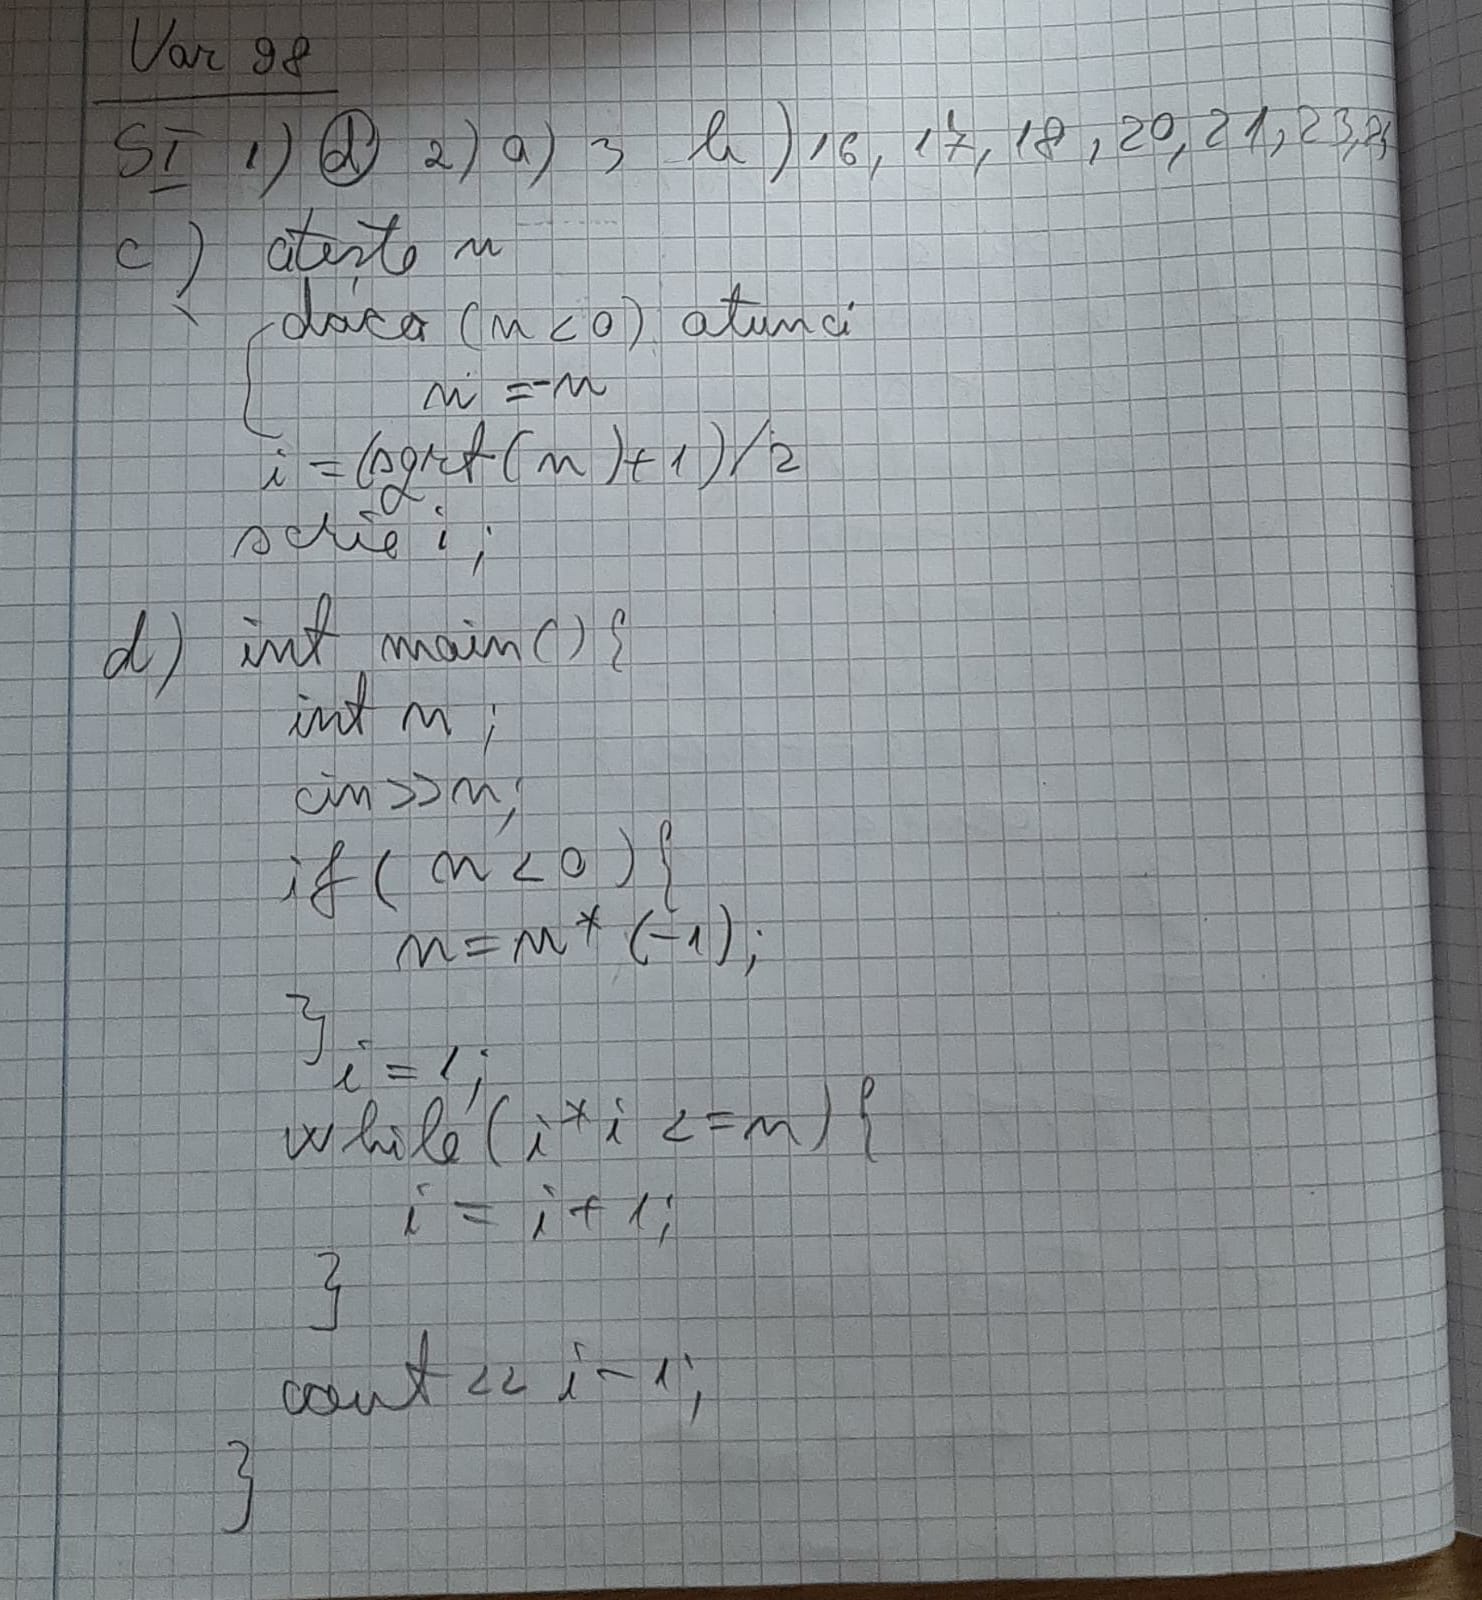 Var 98
SI 1) d 2) a) 3 b) 16, 17, 18, 20, 21, 23,
c) citește n
daca (n<0) atunci
n =-n
i = (sqrt(n)+1)/2
scrie i;
d) int main(){
int n;
cin>>n;
if( n<0){
n=n*(-1);
}
i=1;
while(i*i <=n){
i = i+1;
}
cout << i-1;
}